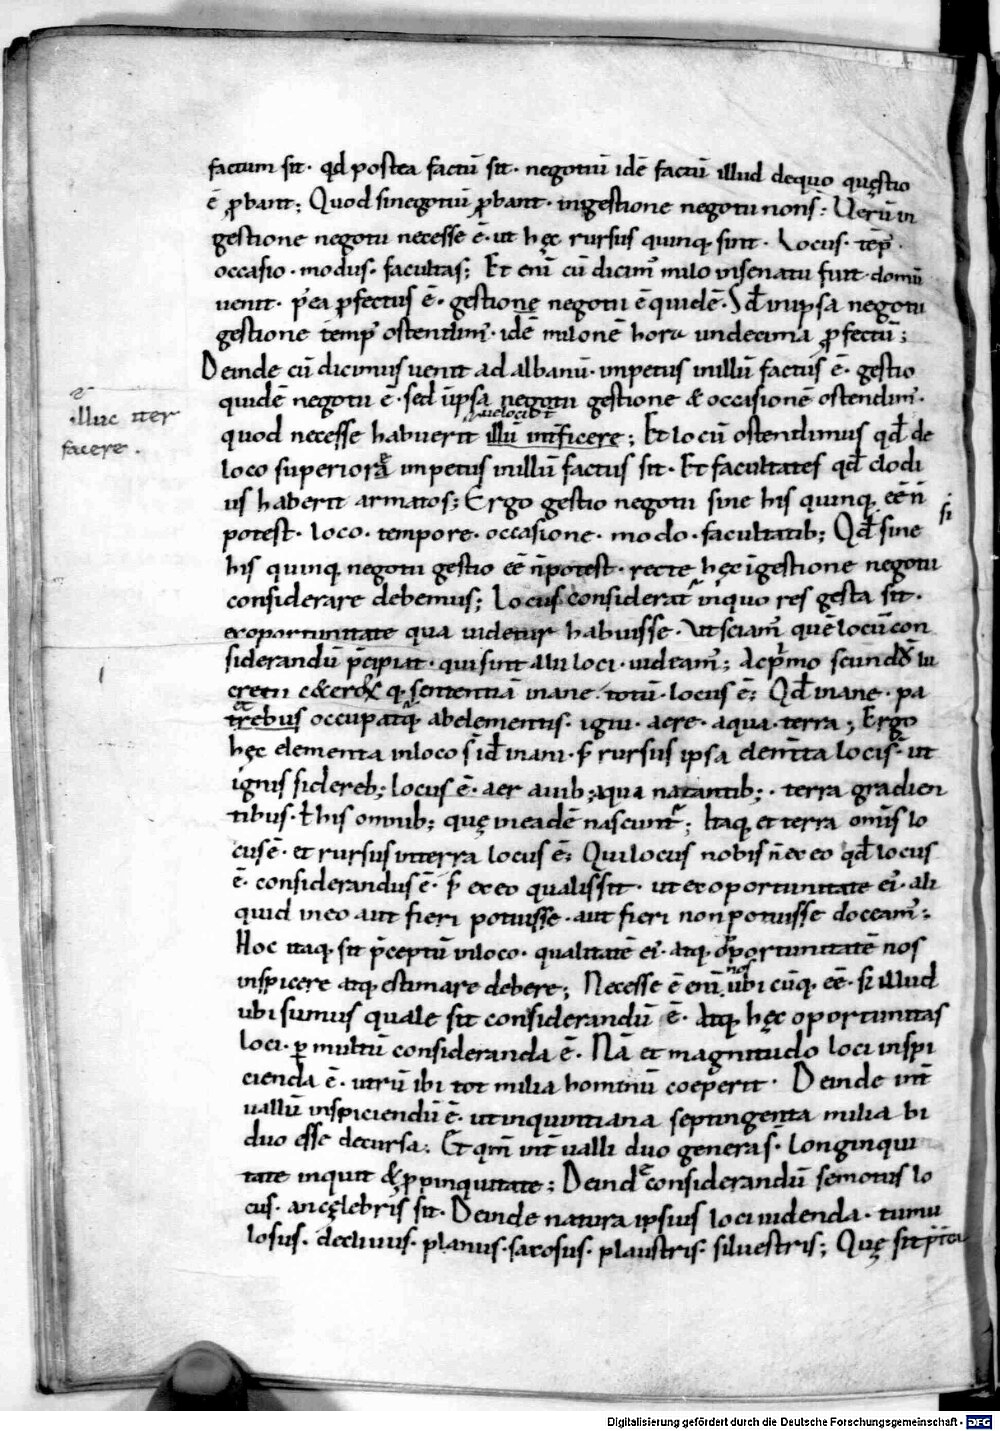 factum sit · qd postea factū sit · negotiū idē factū illud dequo quęstio
ē pbant; Quod sinegotiū pbant · ingestione negotii non s̄; Uerū in
gestione negotii necesse ē · ut hęc rursus quinq; sint · Locus · tēp̄ ·
occasio · modus · facultas; Et enī cū dicim' milo insenatu fuit · domū
uenit · p̄ea pfectus ē · gestione negotii ē quidē · Sꝗ inipsa negotii
gestione temp' ostendim' · idē milonē hora undecima pfectū;
Deinde cū dicimus uenit ad albanū · impetus inillū factus ē · gestio
quidē negotii ē · sed īipsa negotii gestione & occasionē ostendim' ·
uelociт̄
ē
illuc iter
facere ·
quod necesse habuerit illū int̄ficere; Et locū ostendimus qđ de
loco superiorę impetus inillū factus sit · Et facultates qđ clodi
us haberit armatos; Ergo gestio negotii sine his quinq; eē n̄
potest · loco · tempore · occasione · modo · facultatib; Qđ sine
si
his quinq; negotii gestio eē n̄ potest · recte hęc ī gestione negotii
considerare debemus; Locus considerat' inquo res gesta sit ·
exoportunitate qua uidetur habuisse · Ut sciam' quē locū con
siderandū p̄cipiat · qui sint alii loci · uideam'; Ac pimo scundū lu
cretii sententiā inane totū · locus ē; Qđ inane · pa
trebus occupatq; abelementis · igni · aere · aqua · terra; Ergo
hęc elementa inloco s̄ id inani · s; rursus ipsa elem̄ta locis · ut
ignis sidereb; locus ē · aer auib; aqua natantib; · terra gradien
tibus · t his omnib; quę ineadē nascunt'; Itaq; et terra omis lo
cus ē · et rursus interra locus ē; Qui locus nobis n̄ ex eo qđ locus
ē · considerandus ē · s; ex eo qualis sit · ut exoportunitate ei' · ali
quid ineo aut fieri potuisse · aut fieri non potuisse doceam';
Hoc itaq; sit p̄ceptū inloco · qualitatē ei' · atq; oportunitatē nos
nos
inspicere atq; estimare debere; Necesse ē enī ubi cūq; eē · si illud
ubi sumus quale sit considerandū ē · Atq; hęc oportunitas
loci · p multū consideranda ē · Nā et magnitudo loci inspi
cienda ē · utrū ibi tot milia hominū coeperit · Deinde int̄
uallū inspiciendū ē · ut inquintiana septingenta milia bi
duo esse decursa; Et qm̄ int̄ualli duo genera s̄ · longinqui
tate inquit & ppinquitate; Deinde considerandū semotus lo
cus · an cęlebris sit · Deinde natura ipsius loci uidenda · tumu
losus · decliuus · planus · saxosus · plaustris · siluestris; Quę sit p̄tea
Digitalisierung gefördert durch die Deutsche Forschungsgemeinschaft - DFG